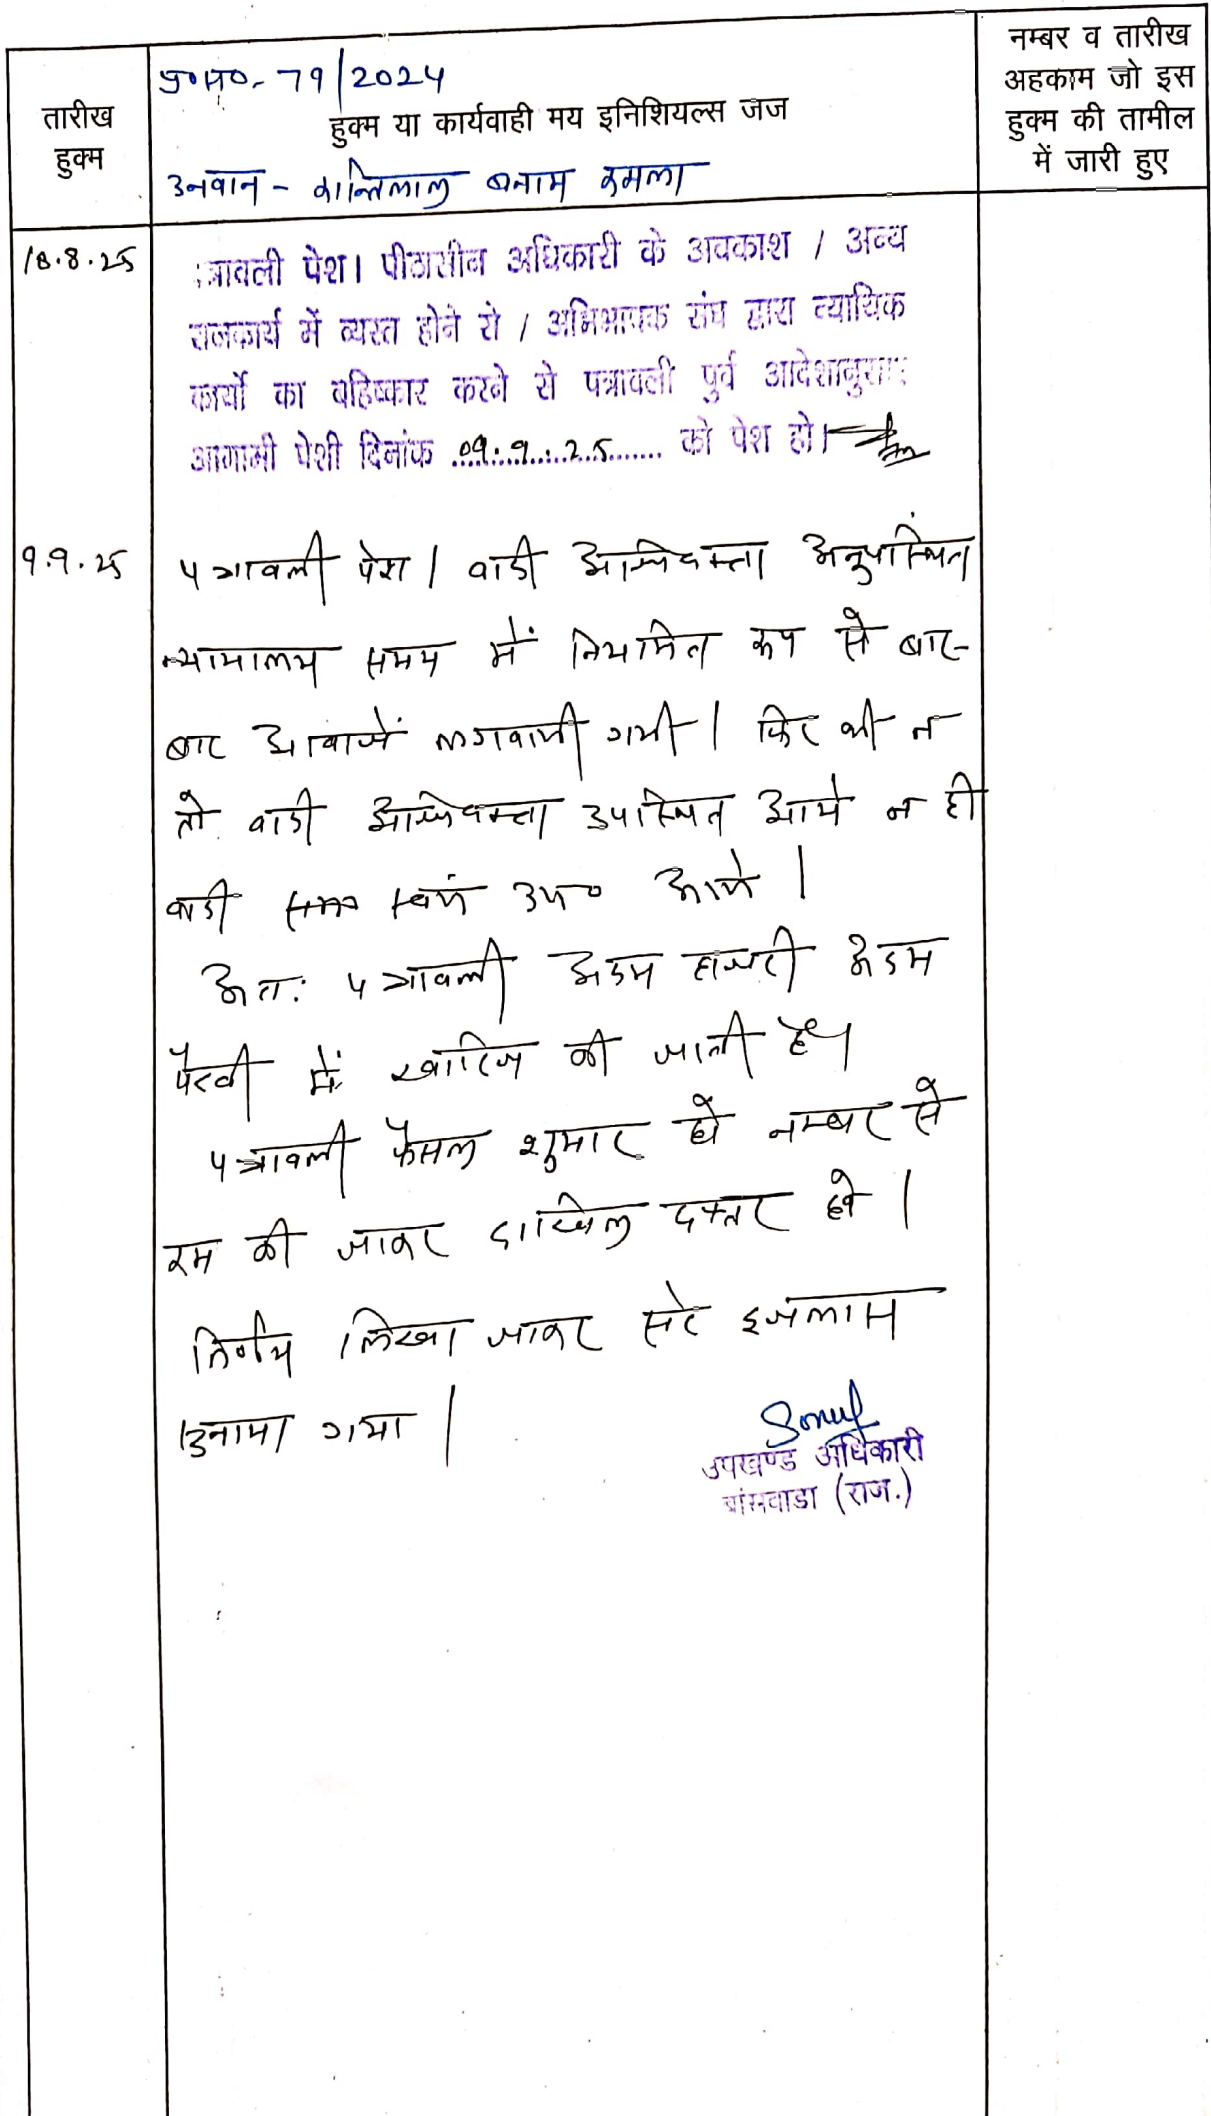 प्र०स०- 79/2024
तारीख
हुक्म
हुक्म या कार्यवाही मय इनिशियल्स जज
उनवान - कान्तिलाल बनाम कमला
नम्बर व तारीख
अहकाम जो इस
हुक्म की तामील
में जारी हुए
18.8.25
पत्रावली पेश। पीठासीन अधिकारी के अवकाश / अन्य
राजकार्य में व्यस्त होने से / अभिभाषक संघ द्वारा न्यायिक
कार्यो का बहिष्कार करने से पत्रावली पुर्व आदेशानुसार
आगामी पेशी दिनांक 09.9.25 को पेश हो।
9.9.25
पत्रावली पेश। वादी अभिवक्ता अनुपस्थित
न्यायालय समय में नियमित रूप से बार-
बार आवाजें लगवायी गयी। फिर भी न
तो वादी अभिवक्ता उपस्थित आये न ही
वादी स्वयं उप० आये।
अतः पत्रावली अदम हाजरी अदम
पैरवी में खारिज की जाती है।
पत्रावली फैसल शुमार हो नम्बर से
कम की जाकर दाखिल दफ्तर हो।
निर्णय लिखा जाकर सरे इजलास
सुनाया गया।
उपखण्ड अधिकारी
बांसवाडा (राज.)